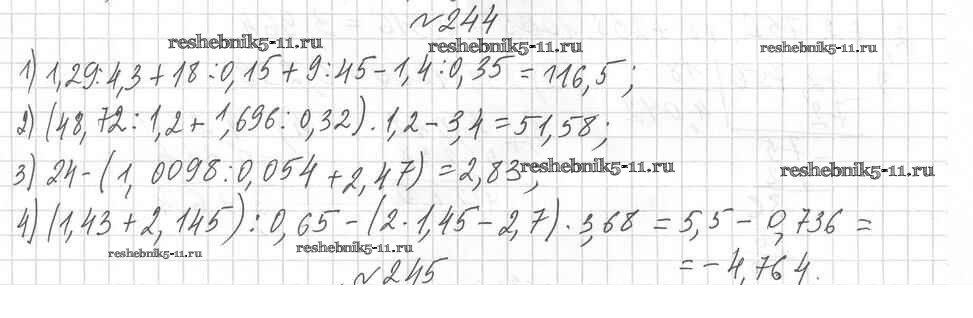 №244
reshebnik5-11.ru reshebnik5-11.ru reshebnik5-11.ru
1) 1,29:4,3+18:0,15+9:45-1,4:0,35=116,5;
2) (48,72:1,2+1,696:0,32)·1,2-3,4=51,58;
3) 24-(1,0098:0,054+2,47)=2,83;
reshebnik5-11.ru reshebnik5-11.ru
4) (1,43+2,145):0,65-(2·1,45-2,7)·3,68=5,5-0,736=
reshebnik5-11.ru reshebnik5-11.ru
=-4,764.
№245